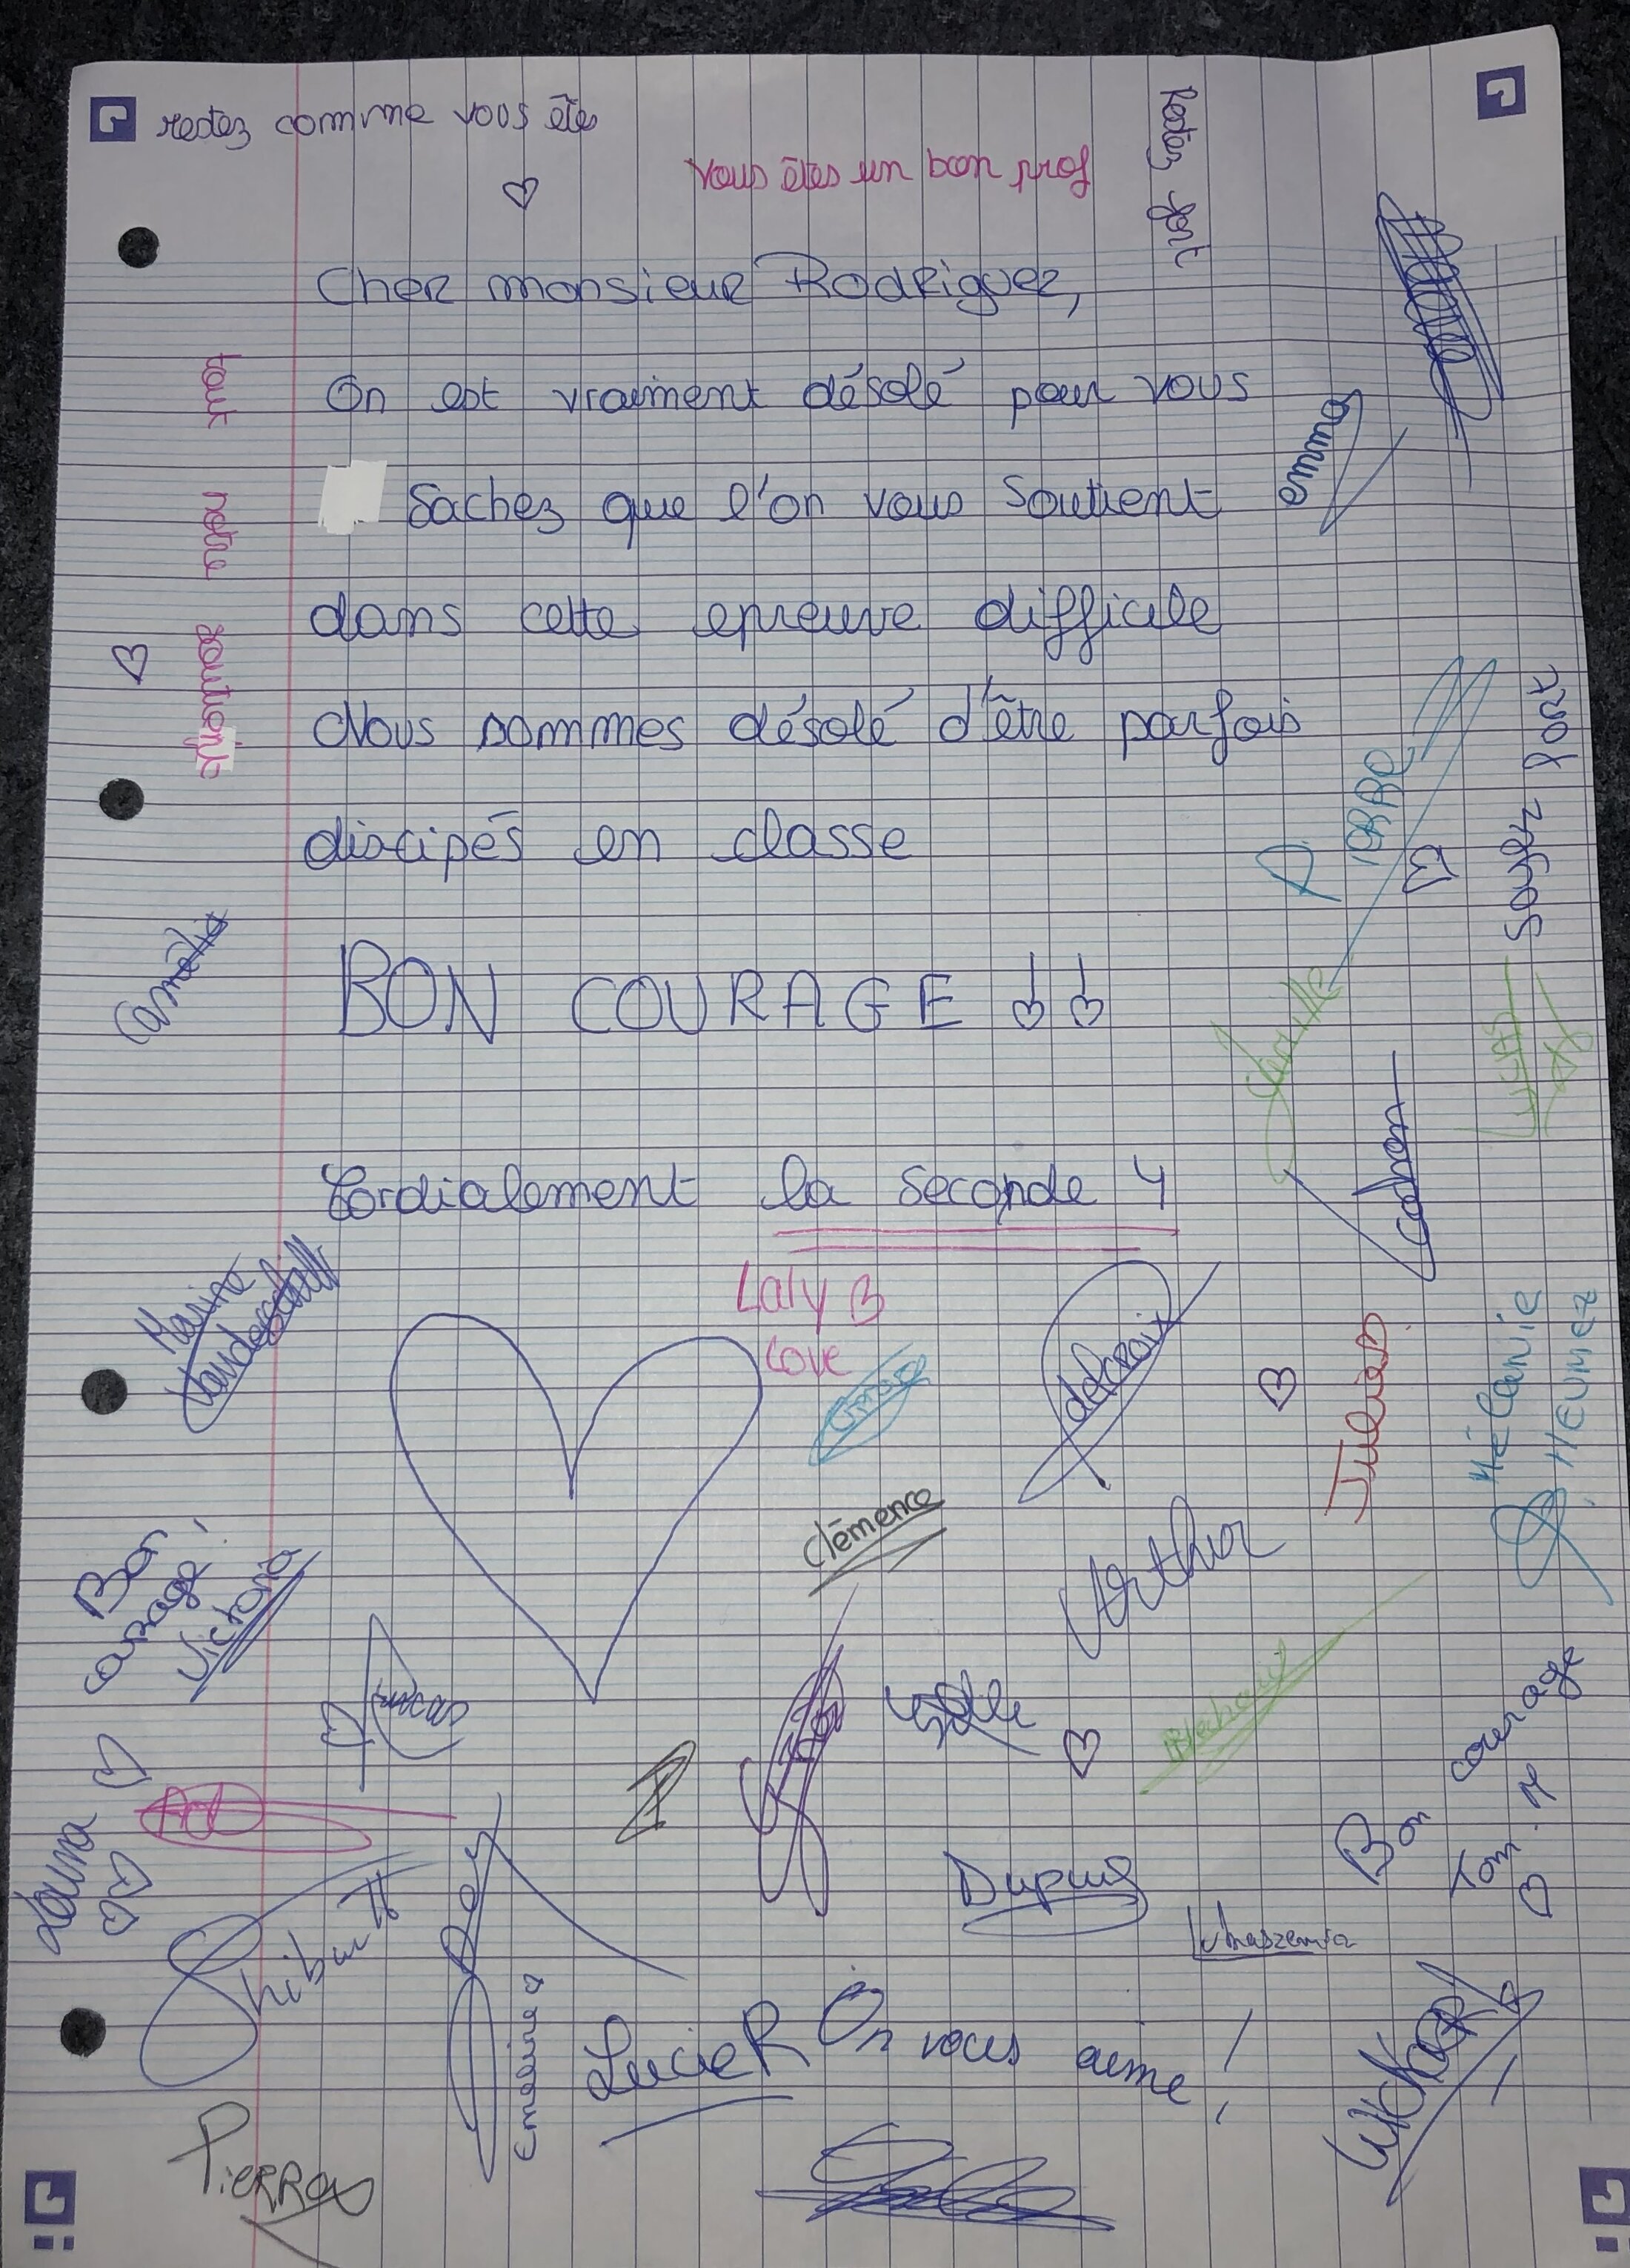 restez comme vous êtes
vous êtes un bon prof
Restez fort
Cher monsieur Rodriguez,
On est vraiment désolé pour vous
emma
Sachez que l'on vous soutient
tout notre soutient
dans cette epreuve difficile
Nous sommes désolé d'être parfois
discipés en classe
Soyez fort
PIERRE
Camélia
BON COURAGE !!
Lucas
Cordialement la seconde 4
Marine
Laly B
Love
delcroix
Julian
Mélanie
HEUMEZ
Clémence
Arthur
Bon courage !
Victoria
Bon courage
Tom . R
Louna
Dupuis
Thibault
Emeline
Lucie R
On vous aime !
Pierre